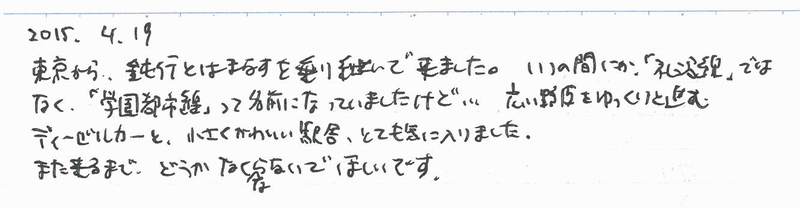 2015. 4. 19
東京から、鈍行とはまなすを乗り継いで来ました。 いつの間にか、「札沼線」では
なく、「学園都市線」って名前になっていましたけど… 広い野原をゆっくりと進む
ディーゼルカーと、小さくかわいい駅舎、とても気に入りました。
また来るまで、どうかなくならないでほしいです。